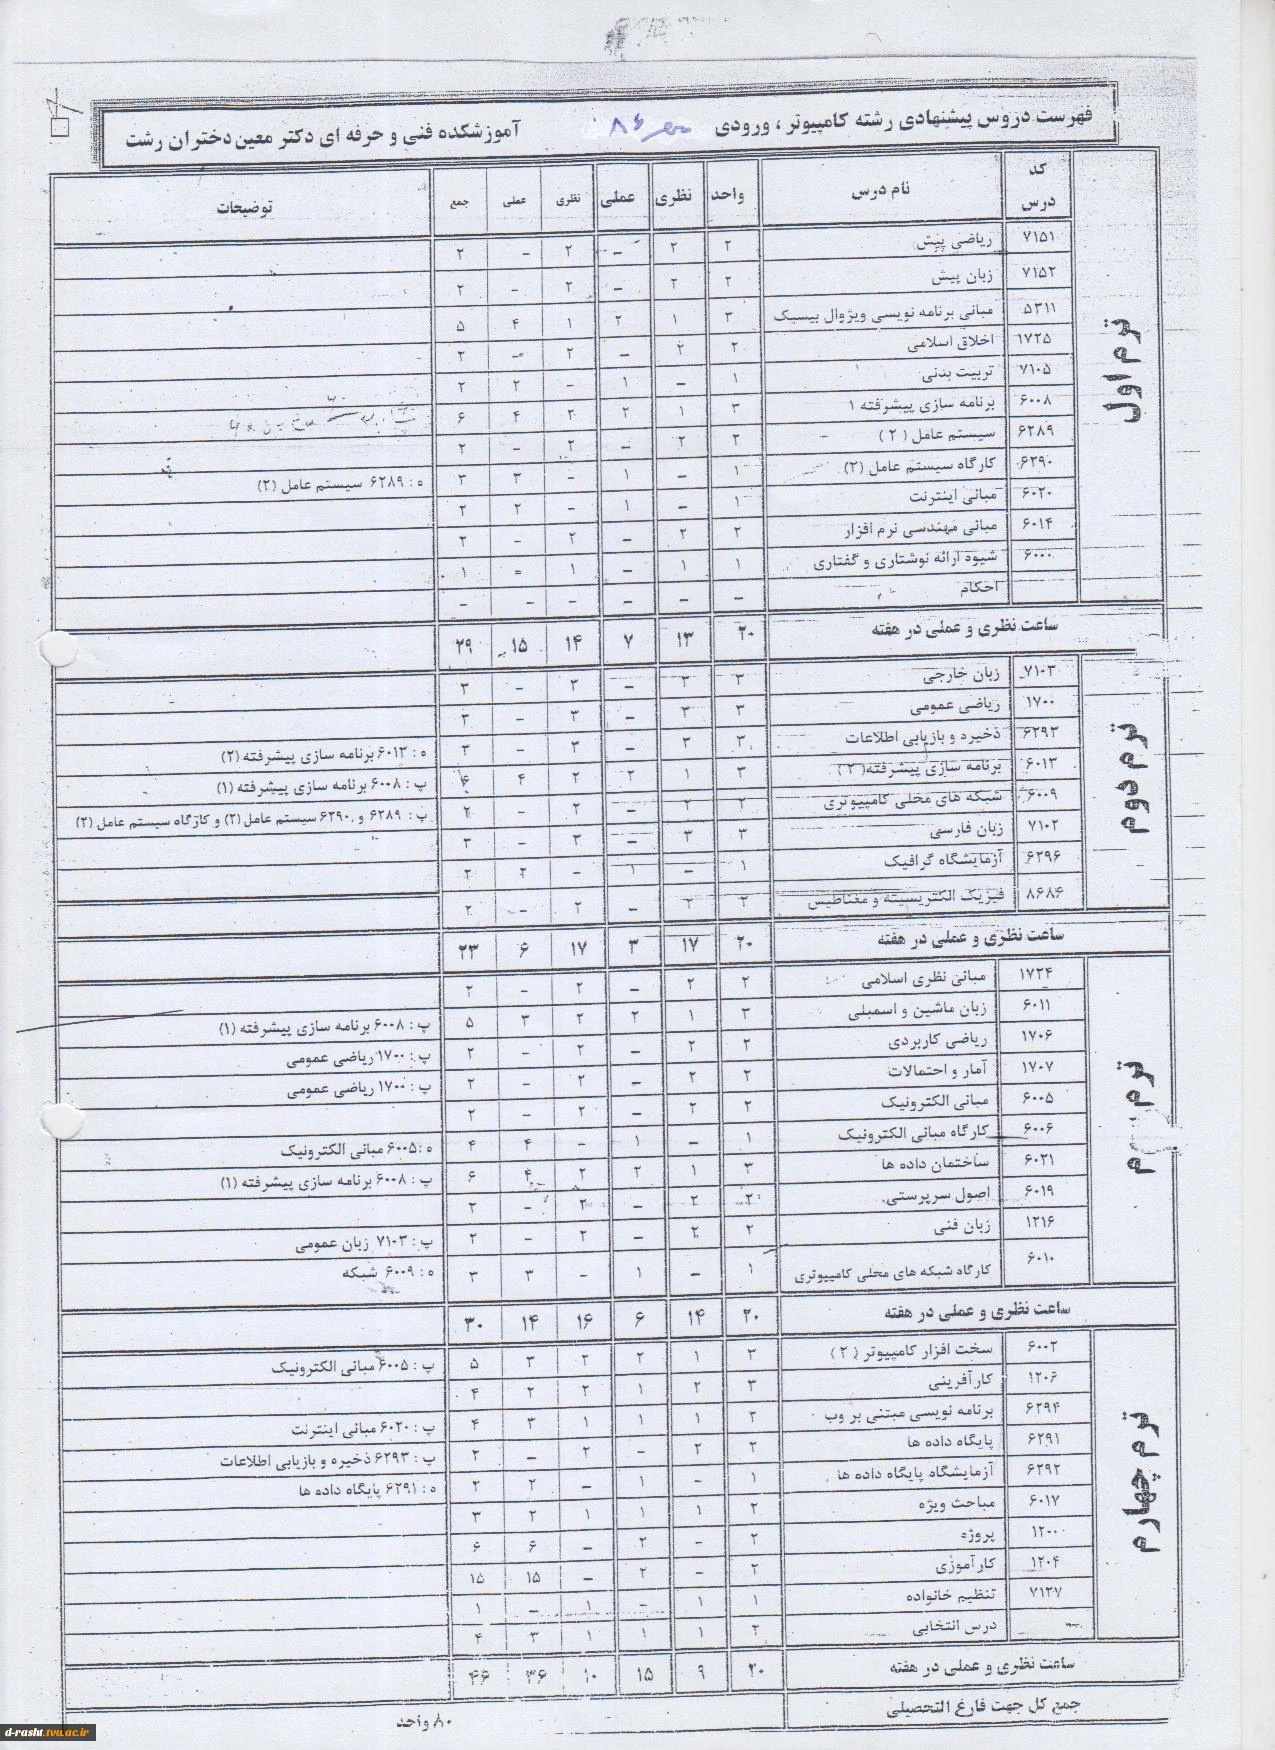 فهرست دروس پیشنهادی رشته کامپیوتر ، ورودی مهر ۸۶ آموزشکده فنی و حرفه ای دکتر معین دختران رشت
کد درس نام درس واحد نظری عملی نظری عملی جمع توضیحات
ترم اول
۷۱۵۱ ریاضی پیش ۲ ۲ – ۲ – ۲
۷۱۵۲ زبان پیش ۲ ۲ – ۲ – ۲
۵۳۱۱ مبانی برنامه نویسی ویژوال بیسیک ۳ ۱ ۲ ۱ ۴ ۵
۱۷۲۵ اخلاق اسلامی ۲ ۲ – ۲ – ۲
۷۱۰۵ تربیت بدنی ۱ – ۱ – ۲ ۲
۶۰۰۸ برنامه سازی پیشرفته ۱ ۳ ۱ ۲ ۲ ۴ ۶
۶۲۸۹ سیستم عامل ( ۲ ) ۲ ۲ – ۲ – ۲
۶۲۹۰ کارگاه سیستم عامل (۲) ۱ – ۱ – ۳ ۳ ه : ۶۲۸۹ سیستم عامل (۲)
۶۰۲۰ مبانی اینترنت ۱ – ۱ – ۲ ۲
۶۰۱۴ مبانی مهندسی نرم افزار ۲ ۲ – ۲ – ۲
۶۰۰۰ شیوه ارائه نوشتاری و گفتاری ۱ ۱ – ۱ – ۱
احکام – – – – – –
ساعت نظری و عملی در هفته ۲۰ ۱۳ ۷ ۱۴ ۱۵ ۲۹
ترم دوم
۷۱۰۳ زبان خارجی ۳ ۳ – ۳ – ۳
۱۷۰۰ ریاضی عمومی ۳ ۳ – ۳ – ۳
۶۲۹۳ ذخیره و بازیابی اطلاعات ۳ ۳ – ۳ – ۳ ه : ۶۰۱۳ برنامه سازی پیشرفته (۲)
۶۰۱۳ برنامه سازی پیشرفته( ۲ ) ۳ ۱ ۲ ۲ ۴ ۶ پ : ۶۰۰۸ برنامه سازی پیشرفته (۱)
۶۰۰۹ شبکه های محلی کامپیوتری ۲ ۲ – ۲ – ۲ پ : ۶۲۸۹ و ۶۲۹۰ سیستم عامل (۲) و کارگاه سیستم عامل (۲)
۷۱۰۲ زبان فارسی ۳ ۳ – ۳ – ۳
۶۲۹۶ آزمایشگاه گرافیک ۱ – ۱ – ۲ ۲
۸۶۸۶ فیزیک الکتریسیته و مغناطیس ۲ ۲ – ۲ – ۲
ساعت نظری و عملی در هفته ۲۰ ۱۷ ۳ ۱۷ ۶ ۲۳
ترم م
۱۷۲۴ مبانی نظری اسلامی ۲ ۲ – ۲ – ۲
۶۰۱۱ زبان ماشین و اسمبلی ۳ ۱ ۲ ۲ ۳ ۵ پ : ۶۰۰۸ برنامه سازی پیشرفته (۱)
۱۷۰۶ ریاضی کاربردی ۲ ۲ – ۲ – ۲ پ : ۱۷۰۰ ریاضی عمومی
۱۷۰۷ آمار و احتمالات ۲ ۲ – ۲ – ۲ پ : ۱۷۰۰ ریاضی عمومی
۶۰۰۵ مبانی الکترونیک ۲ ۲ – ۲ – ۲
۶۰۰۶ کارگاه مبانی الکترونیک ۱ – ۱ – ۴ ۴ ه : ۶۰۰۵ مبانی الکترونیک
۶۰۲۱ ساختمان داده ها ۳ ۱ ۲ ۲ ۴ ۶ پ : ۶۰۰۸ برنامه سازی پیشرفته (۱)
۶۰۱۹ اصول سرپرستی ۲ ۲ – ۲ – ۲
۱۲۱۶ زبان فنی ۲ ۲ – ۲ – ۲ پ : ۷۱۰۳ زبان عمومی
۶۰۱۰ کارگاه شبکه های محلی کامپیوتری ۱ – ۱ – ۳ ۳ ه : ۶۰۰۹ شبکه
ساعت نظری و عملی در هفته ۲۰ ۱۴ ۶ ۱۶ ۱۴ ۳۰
ترم چهارم
۶۰۰۲ سخت افزار کامپیوتر ( ۲ ) ۳ ۱ ۲ ۲ ۳ ۵ پ : ۶۰۰۵ مبانی الکترونیک
۱۲۰۶ کارآفرینی ۳ ۲ ۱ ۲ ۲ ۴
۶۲۹۴ برنامه نویسی مبتنی بر وب ۲ ۱ ۱ ۱ ۳ ۴ پ : ۶۰۲۰ مبانی اینترنت
۶۲۹۱ پایگاه داده ها ۲ ۲ – ۲ – ۲ پ : ۶۲۹۳ ذخیره و بازیابی اطلاعات
۶۲۹۲ آزمایشگاه پایگاه داده ها ۱ – ۱ – ۲ ۲ ه : ۶۲۹۱ پایگاه داده ها
۶۰۱۷ مباحث ویژه ۲ ۱ ۱ ۱ ۲ ۳
۱۲۰۰ پروژه ۲ – ۲ – ۶ ۶
۱۲۰۴ کارآموزی ۲ – ۲ – ۱۵ ۱۵
۷۱۲۷ تنظیم خانواده ۱ ۱ – ۱ – ۱
درس انتخابی ۲ ۱ ۱ ۱ ۳ ۴
ساعت نظری و عملی در هفته ۲۰ ۹ ۱۵ ۱۰ ۳۶ ۴۶
جمع کل جهت فارغ التحصیلی ۸۰ واحد
d-rasht.tvu.ac.ir